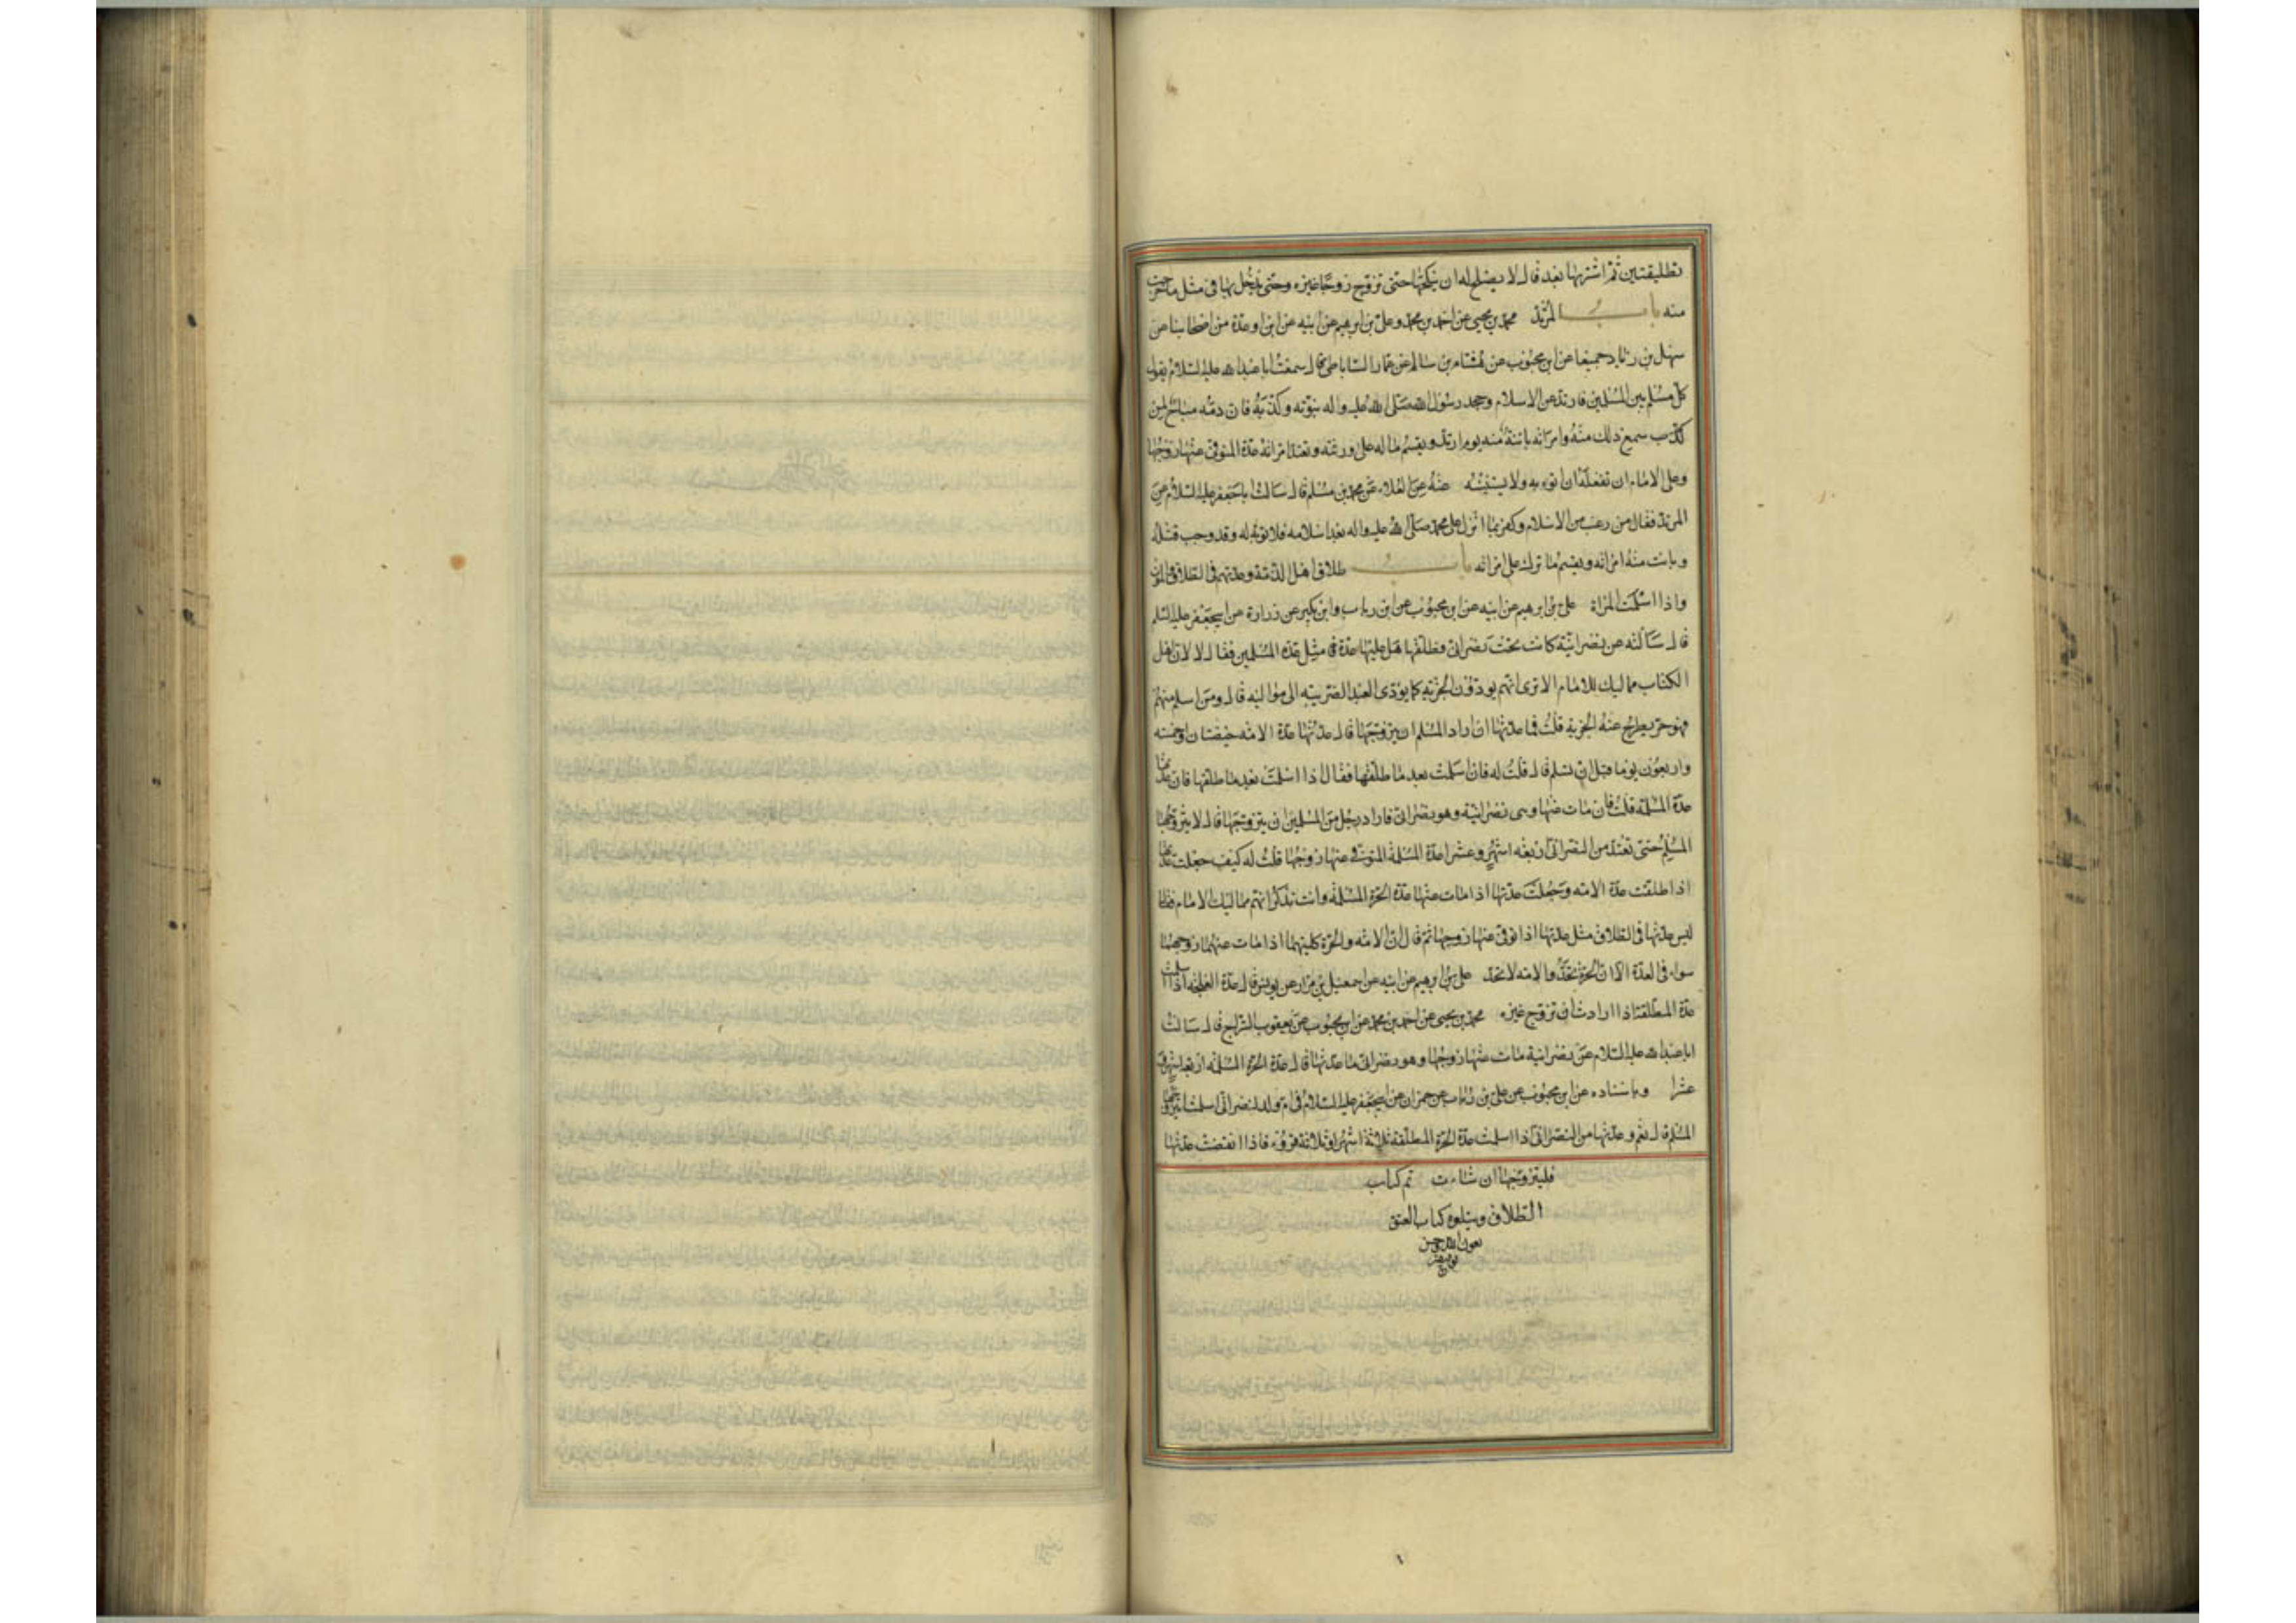 تطليقتين ثم اشتريها بعد قال لا يصلح له ان ينكحها حتى تزوج زوجا غيره وحتى يدخل بها فى مثل ما خرجت
منه باب المرتد محمد بن يحيى عن احمد بن محمد وعلى بن ابرهيم عن ابيه عن ابن او عدة من اصحابنا عن
سهل بن زياد جميعا عن ابن محبوب عن هشام بن سالم عن عمار الساباطى قال سمعت ابا عبد الله عليه السلام يقول
كل مسلم بين المسلمين فارتد عن الاسلام وجحد رسول الله صلى الله عليه واله نبوته وكذبه فان دمه مباح لمن
سمع ذلك منه وامراته باينة منه يوم ارتد ويقسم ماله على ورثته وتعتد امراته عدة المتوفى عنها زوجها
وعلى الامام ان تقتله ان اتوه به ولا يستتيبه عنه عن العلاء عن محمد بن مسلم قال سالت ابا جعفر عليه السلام عن
المرتد فقال من رغب من الاسلام وكفر بما انزل على محمد صلى الله عليه واله بعد اسلامه فلا توبة له وقد وجب قتله
وبانت منه امراته ويقسم ما ترك على امراته باب طلاق اهل الذمة وعدتهم فى الطلاق والموت
واذا اسلمت المراة على بن ابرهيم عن ابيه عن ابن محبوب عن ابن رياب وابن بكير عن زرارة عن ابيجعفر عليه السلم
قال سالته عن نصرانية كانت تحت نصرانى فطلقها هل عليها عدة فى مثل عدة المسلمين فقال لا لان اهل
الكتاب مماليك للامام الا ترى انهم يودون الجزية كما يودى العبد الضريبة الى مواليه قال ومن اسلم منهم
فهو حر يطرح عنه الجزية قلت فما عدتها ان اراد المسلم ان يتزوجها قال عدتها عدة الامة حيضتان او خمسة
واربعون يوما قبل ان تسلم قال قلت له فان اسلمت بعد ما طلقها فقال اذا اسلمت بعد ما طلقها فان عدتها
عدة المسلمة قلت فان مات عنها وهى نصرانية وهو نصرانى فاراد رجل من المسلمين ان يتزوجها قال لا يتزوجها
المسلم حتى تعتد من النصرانى اربعة اشهر وعشرا عدة المسلمة المتوفى عنها زوجها قلت له كيف جعلت عدتها
اذا طلقت عدة الامه وجعلت عدتها اذا مات عنها عدة الحرة المسلمة وانت تذكر انهم مماليك الامام فقال
ليس عدتها فى الطلاق مثل عدتها اذا توفى عنها زوجها ثم قال ان الامة والحرة كلتيهما اذا مات عنهما زوجهما
سواء فى العدة الا ان الحرة تحد والامه لا تحد على بن ابرهيم عن ابيه عن اسمعيل بن مرار عن يونس قال عدة العلجة اذا اسلمت
عدة المطلقة اذا ارادت ان تزوج غيره محمد بن يحيى عن احمد بن محمد عن ابن محبوب عن يعقوب السراج قال سالت
ابا عبد الله عليه السلام عن نصرانية مات عنها زوجها وهو نصرانى ما عدتها قال عدة الحرة المسلمة اربعة اشهر و
عشرا وباسناده عن ابن محبوب عن على بن رئاب عن حمران عن ابيجعفر عليه السلام فى ام ولد لنصرانى اسلمت ايتزوجها
المسلم قال نعم وعدتها من النصرانى اذا اسلمت عدة الحرة المطلقة ثلاثة اشهر او ثلاثة قروء فاذا انقضت عدتها
فليتزوجها ان شاءت تم كتاب
الطلاق ويتلوه كتاب العتق
بعون الله وحسن
توفيقه